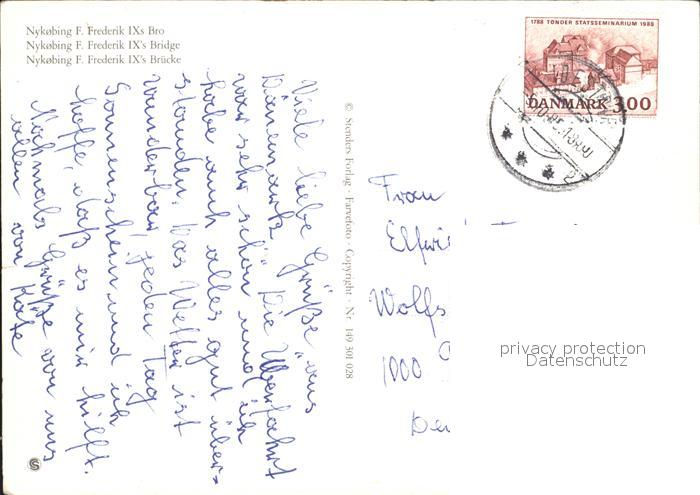 Nykøbing F. Frederik IXs Bro
Nykøbing F. Frederik IX's Bridge
Nykøbing F. Frederik IX's Brücke
1788 TONDER STATSSEMINARIUM 1988
DANMARK 3.00
Viele liebe Grüße aus
Dänemark. Die Überfahrt
war sehr schön und ich
habe auch alles gut über-
standen. Das Wetter ist
wunderbar, jeden Tag
Sonnenschein und ich
hoffe, daß es mir hilft.
Nochmals Grüße von uns
allen von Käte
© Stenders Forlag · Farvefoto · Copyright · Nr. 149 301 028
Frau
Elfri
Wolfs
1000
privacy protection
Datenschutz
S